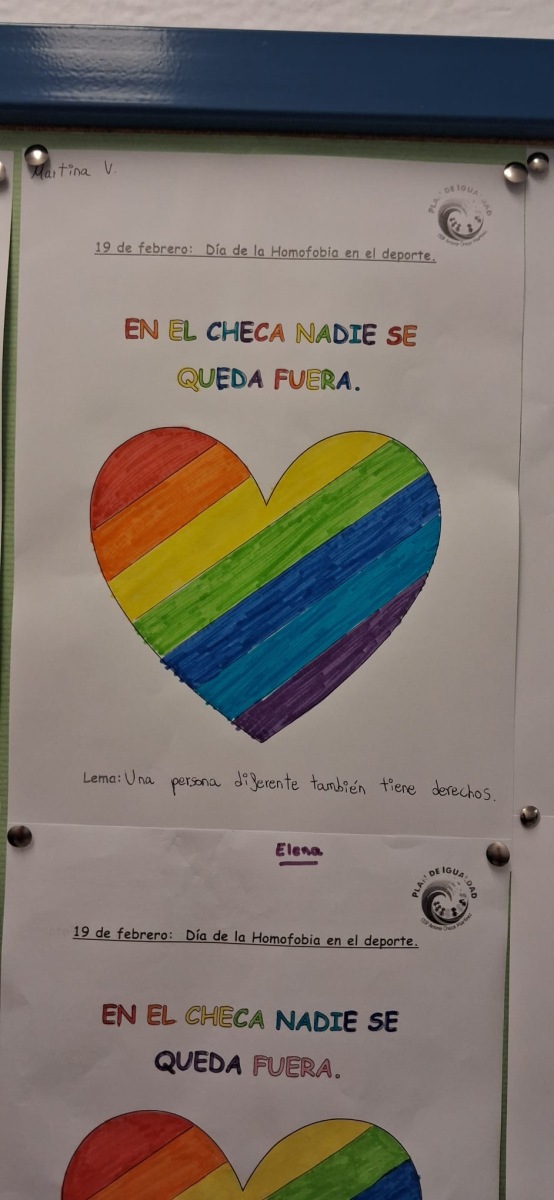 Martina V.
PLAN DE IGUALDAD
19 de febrero: Día de la Homofobia en el deporte.
EN EL CHECA NADIE SE
QUEDA FUERA.
Lema: Una persona diferente también tiene derechos.
Elena
PLAN DE IGUALDAD
19 de febrero: Día de la Homofobia en el deporte.
EN EL CHECA NADIE SE
QUEDA FUERA.